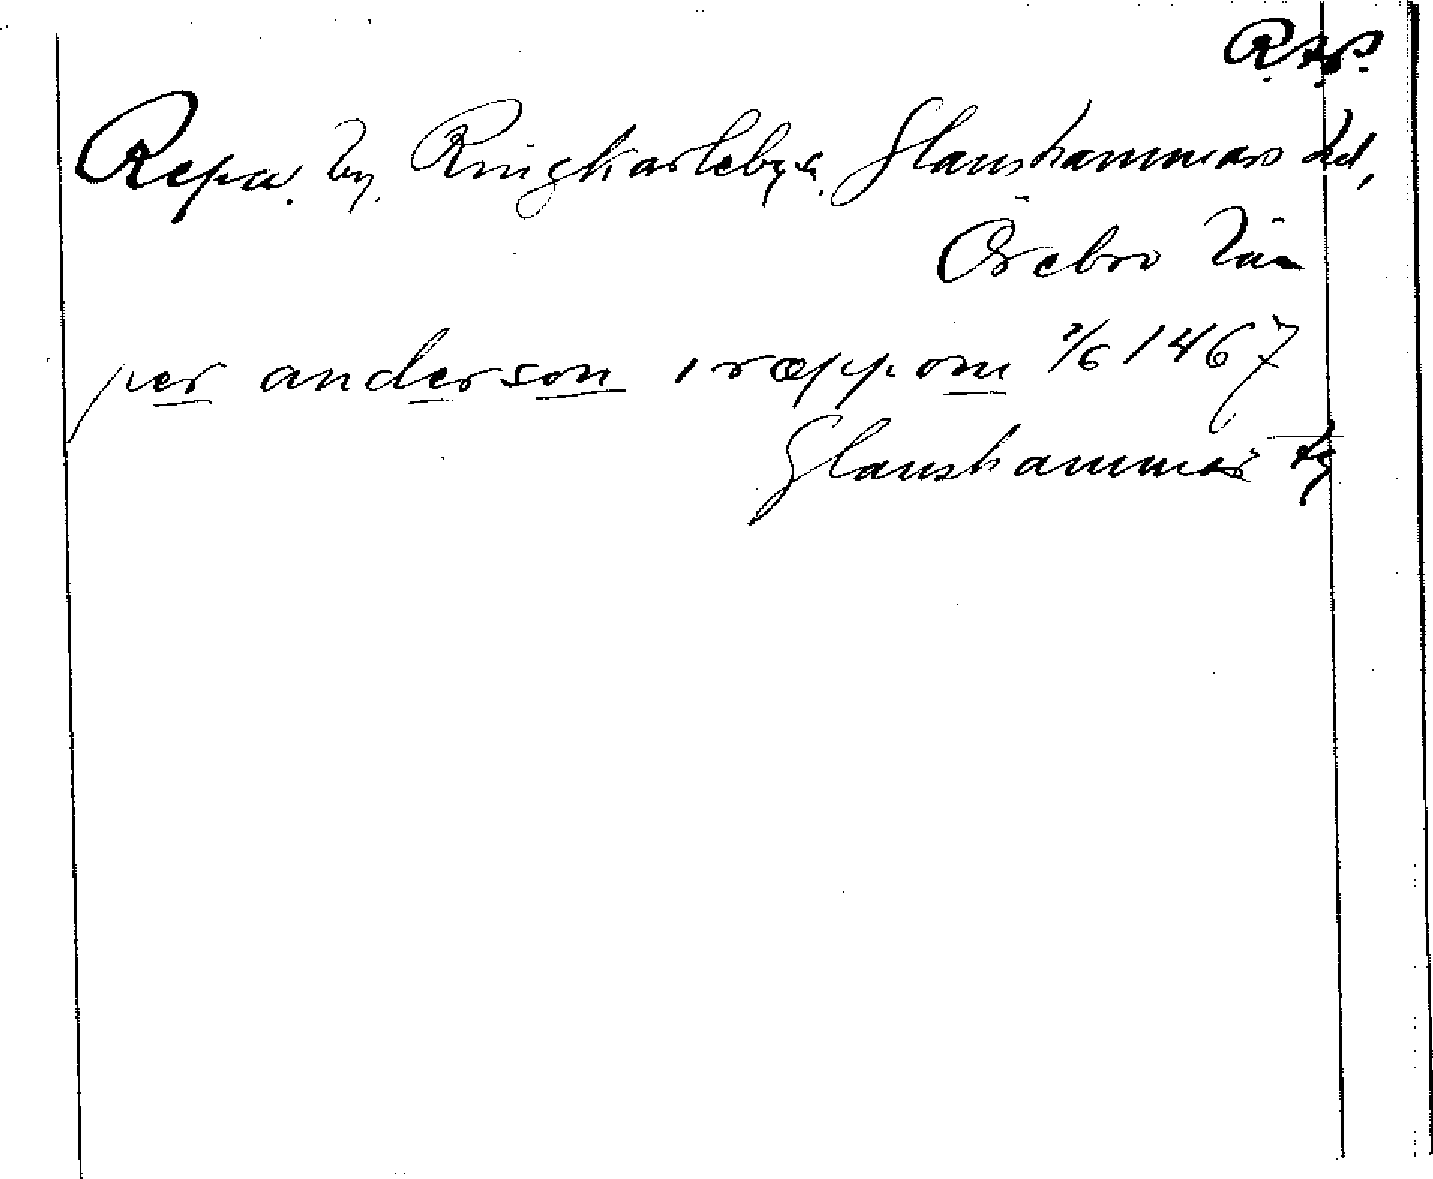 R.ap.
Repa. by. Ringkarleby s. Glanshammars hd,
Örebro län
per anderson i ræppom 2/6 1467
Glanshammar